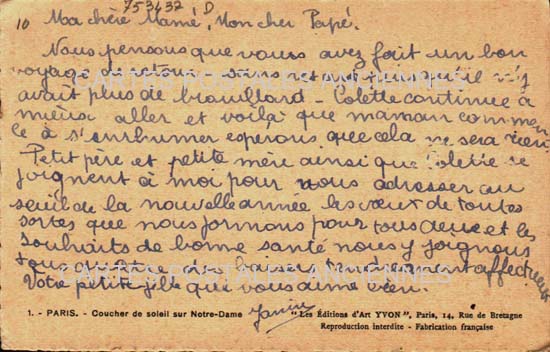 753432 D
10 Ma chère Mamé, Mon cher Papé.
Nous pensons que vous avez fait un bon
voyage de retour sans retard puisqu'il n'y
avait plus de brouillard - Colette continue à
mieux aller et voilà que maman commen
ce à s'enrhumer espérons que cela ne sera rien.
Petit père et petite mère ainsi que Colette se
joignent à moi pour vous adresser au
seuil de la nouvelle année les vœux de toutes
sortes que nous formons pour tous deux et les
souhaits de bonne santé nous y joignons
tous quatre des baisers tendrement affectueux
Votre petite fille qui vous aime bien.
Janine
1. - PARIS. - Coucher de soleil sur Notre-Dame
"Les Éditions d'Art YVON", Paris, 14, Rue de Bretagne
Reproduction interdite - Fabrication française
CARTES POSTALES ANCIENNES
CARTES POSTALES ANCIENNES